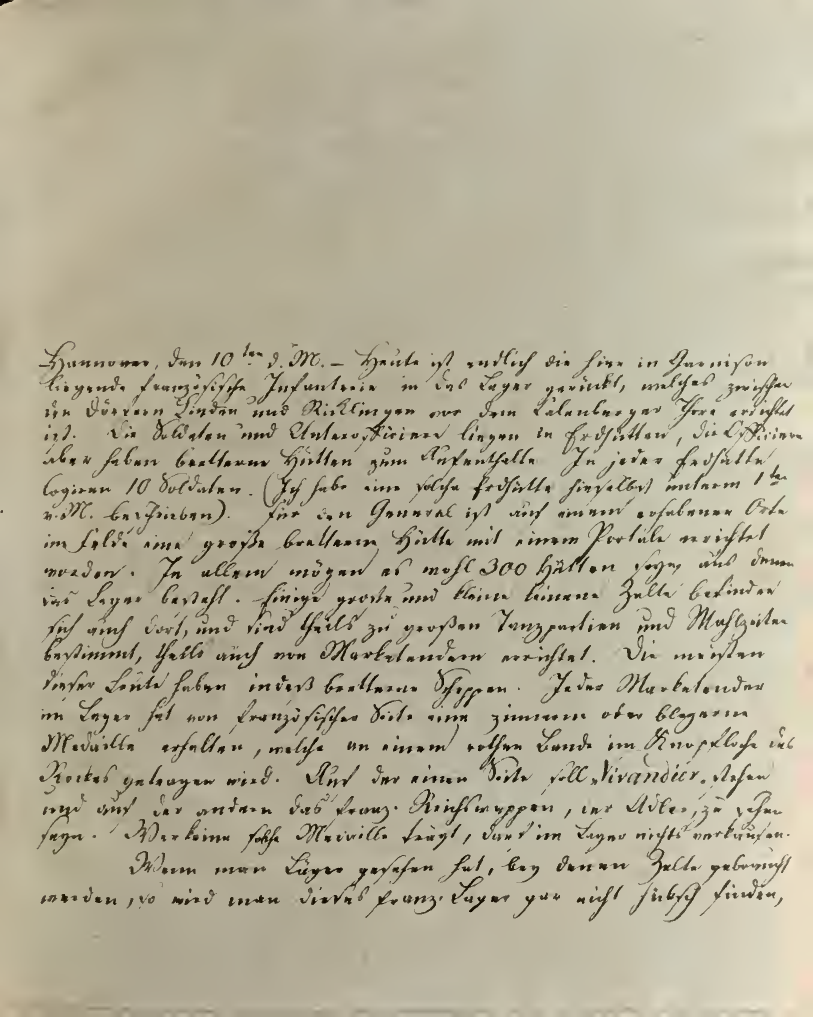 Hannover, den 10ten d. M. – Heute ist endlich die hier in Garnison
liegende französische Infanterie in das Lager gerückt, welches zwischen
den Dörfern Linden und Ricklingen vor dem Calenberger Thore errichtet
ist. Die Soldaten und Unterofficiere liegen in Erdhütten, die Officiere
aber haben bretterne Hütten zum Aufenthalte. In jeder Erdhütte
logiren 10 Soldaten. (Ich habe eine solche Erdhütte hieselbst unterm 1ten
v. M. beschrieben). Für den General ist auf einem erhabenen Orte
im Felde eine große bretterne Hütte mit einem Portale errichtet
worden. In allem mögen es wohl 300 Hütten seyn aus denen
das Lager besteht. Einige große und kleine leinene Zelte befinden
sich auch dort, und sind theils zu großen Tanzpartien und Mahlzeiten
bestimmt, theils auch von Marketendern errichtet. Die meisten
dieser Leute haben indeß bretterne Schoppen. Jeder Marketender
im Lager hat von französischer Seite eine zinnerne oder bleyerne
Medaille erhalten, welche an einem rothen Bande im Knopfloche des
Rockes getragen wird. Auf der einen Seite soll „Vivandier“ stehen
und auf der andern das franz. Reichswappen, der Adler, zu sehen
seyn. Wer keine solche Medaille trägt, darf im Lager nichts verkaufen.
Wenn man Läger gesehen hat, bey denen Zelte gebraucht
werden, so wird man dieses franz. Lager gar nicht hübsch finden,